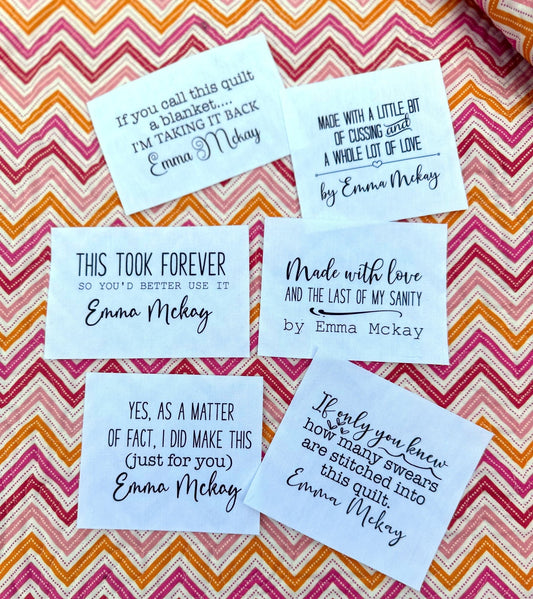 If you call this quilt
a blanket....
I'M TAKING IT BACK
Emma Mckay
MADE WITH A LITTLE BIT
OF CUSSING and
A WHOLE LOT OF LOVE
by Emma Mckay
THIS TOOK FOREVER
SO YOU'D BETTER USE IT
Emma Mckay
Made with love
AND THE LAST OF MY SANITY
by Emma Mckay
YES, AS A MATTER
OF FACT, I DID MAKE THIS
(just for you)
Emma Mckay
If only you knew
how many swears
are stitched into
this quilt.
Emma Mckay